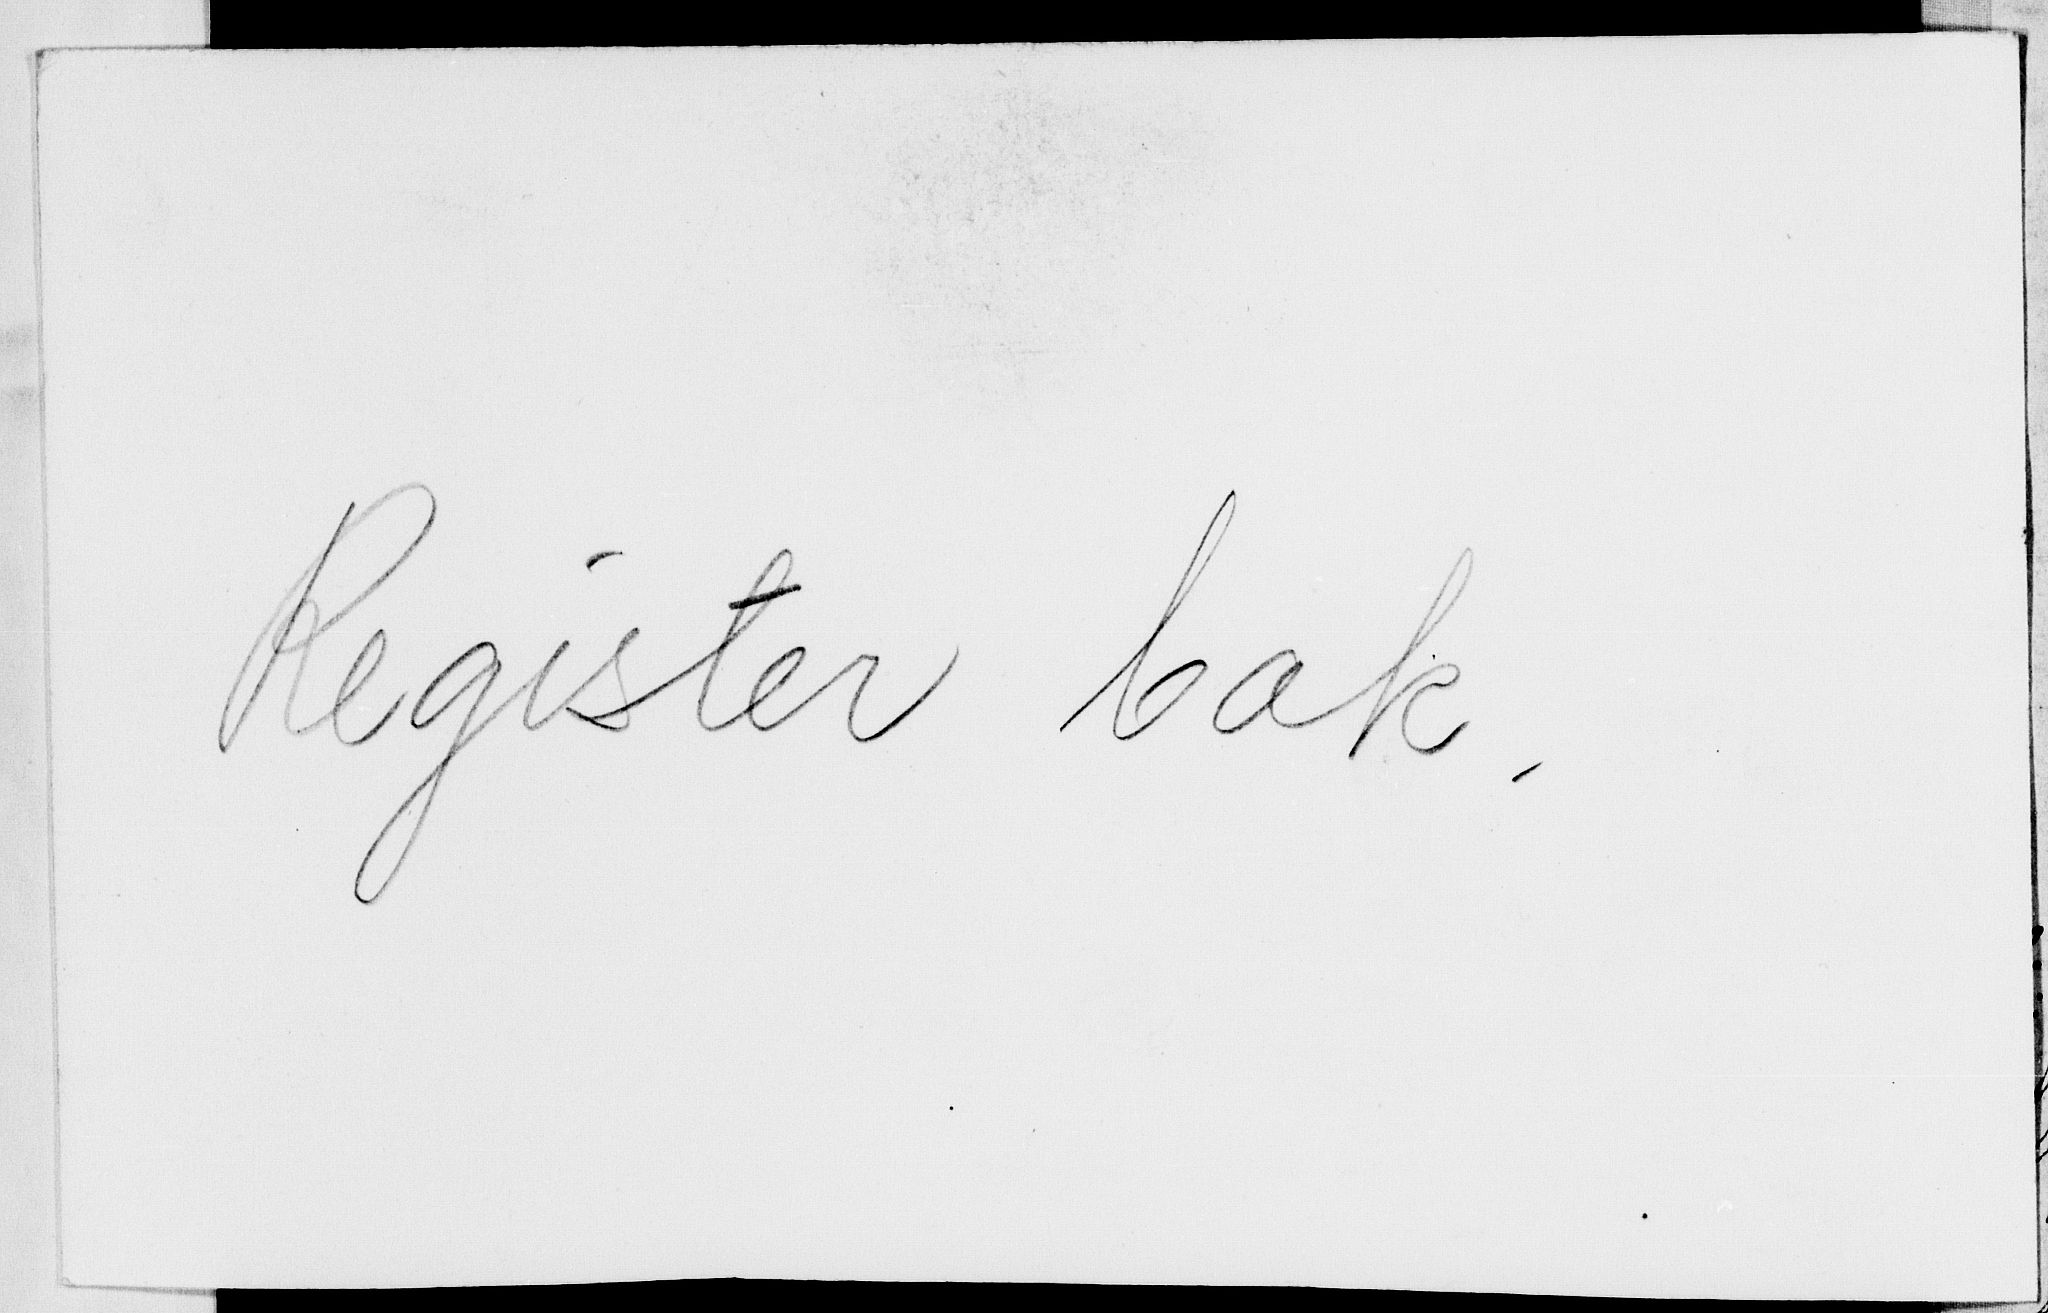 Register bak.